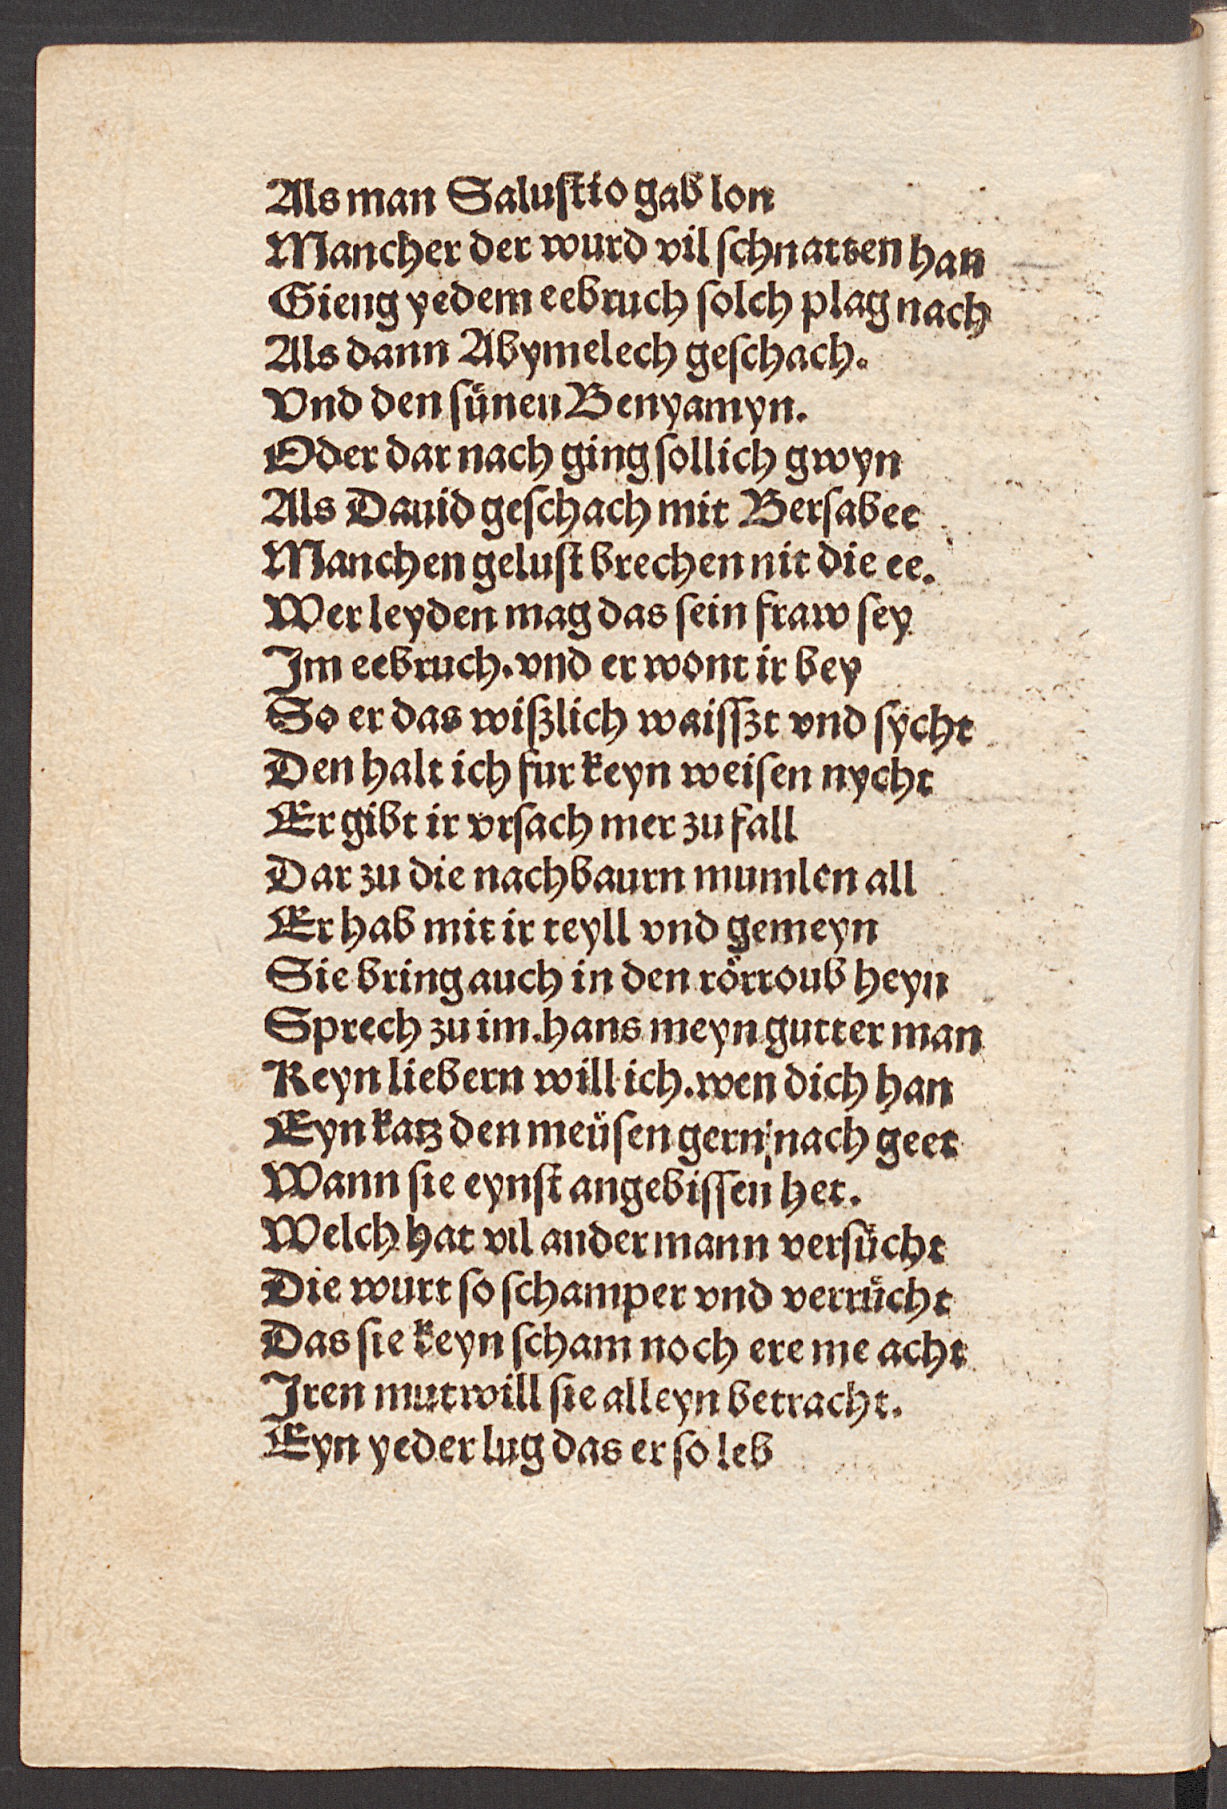 Als man Saluſtio gab lon
Mancher der wurd vil ſchnatten han
Gieng yedem eebruch ſolch plag nach
Als dann Abymelech geſchach.
Vnd den ſünen Benyamyn.
Oder dar nach ging ſollich gwyn
Als Dauid geſchach mit Berſabee
Manchen geluſt brechen nit die ee.
Wer leyden mag das ſein fraw ſey
Im eebruch. vnd er wont ir bey
So er das wißlich waiſſzt vnd ſycht
Den halt ich fur keyn weiſen nycht
Er gibt ir vrſach mer zu fall
Dar zu die nachbaurn mumlen all
Er hab mit ir teyll vnd gemeyn
Sie bring auch in den rörroub heyn
Sprech zu im. hans meyn gutter man
Keyn liebern will ich. wen dich han
Eyn katz den meüſen gern nach geet
Wann ſie eynſt angebiſſen het.
Welch hat vil ander mann verſücht
Die wurt ſo ſchamper vnd verrücht
Das ſie keyn ſcham noch ere me acht
Iren mutwill ſie alleyn betracht.
Eyn yeder lug das er ſo leb